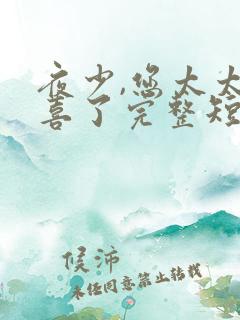 夜少,您太太
喜了完整短
候沛
未经同意禁止转载